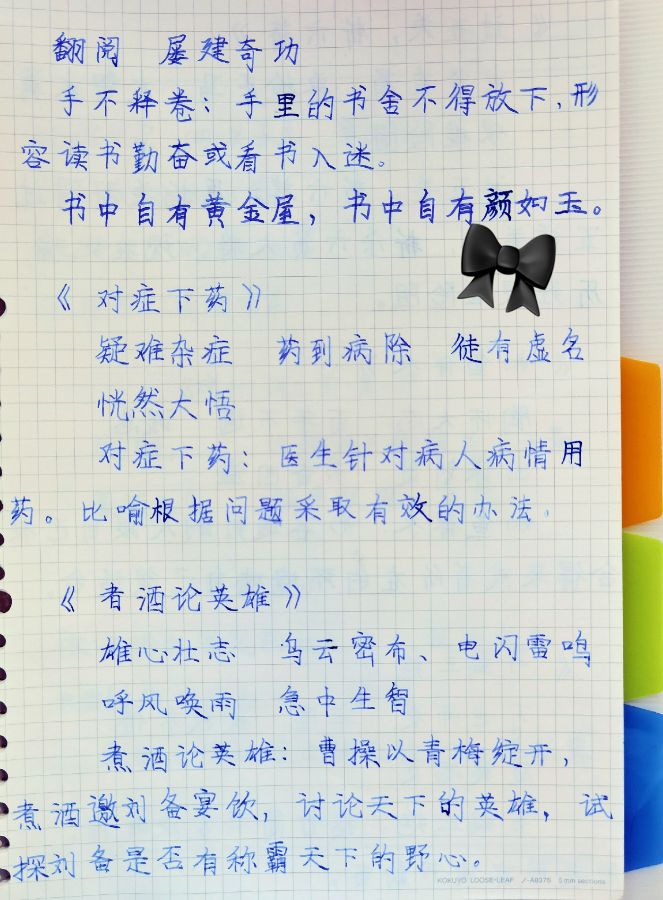 翻阅 屡建奇功
手不释卷：手里的书舍不得放下，形
容读书勤奋或看书入迷。
书中自有黄金屋，书中自有颜如玉。
《对症下药》
疑难杂症 药到病除 徒有虚名
恍然大悟
对症下药：医生针对病人病情用
药。比喻根据问题采取有效的办法．
《煮酒论英雄》
雄心壮志 乌云密布、电闪雷鸣
呼风唤雨 急中生智
煮酒论英雄：曹操以青梅绽开，
煮酒邀刘备宴饮，讨论天下的英雄，试
探刘备是否有称霸天下的野心。
KOKUYO LOOSE-LEAF ノ-A837S 5 mm sections